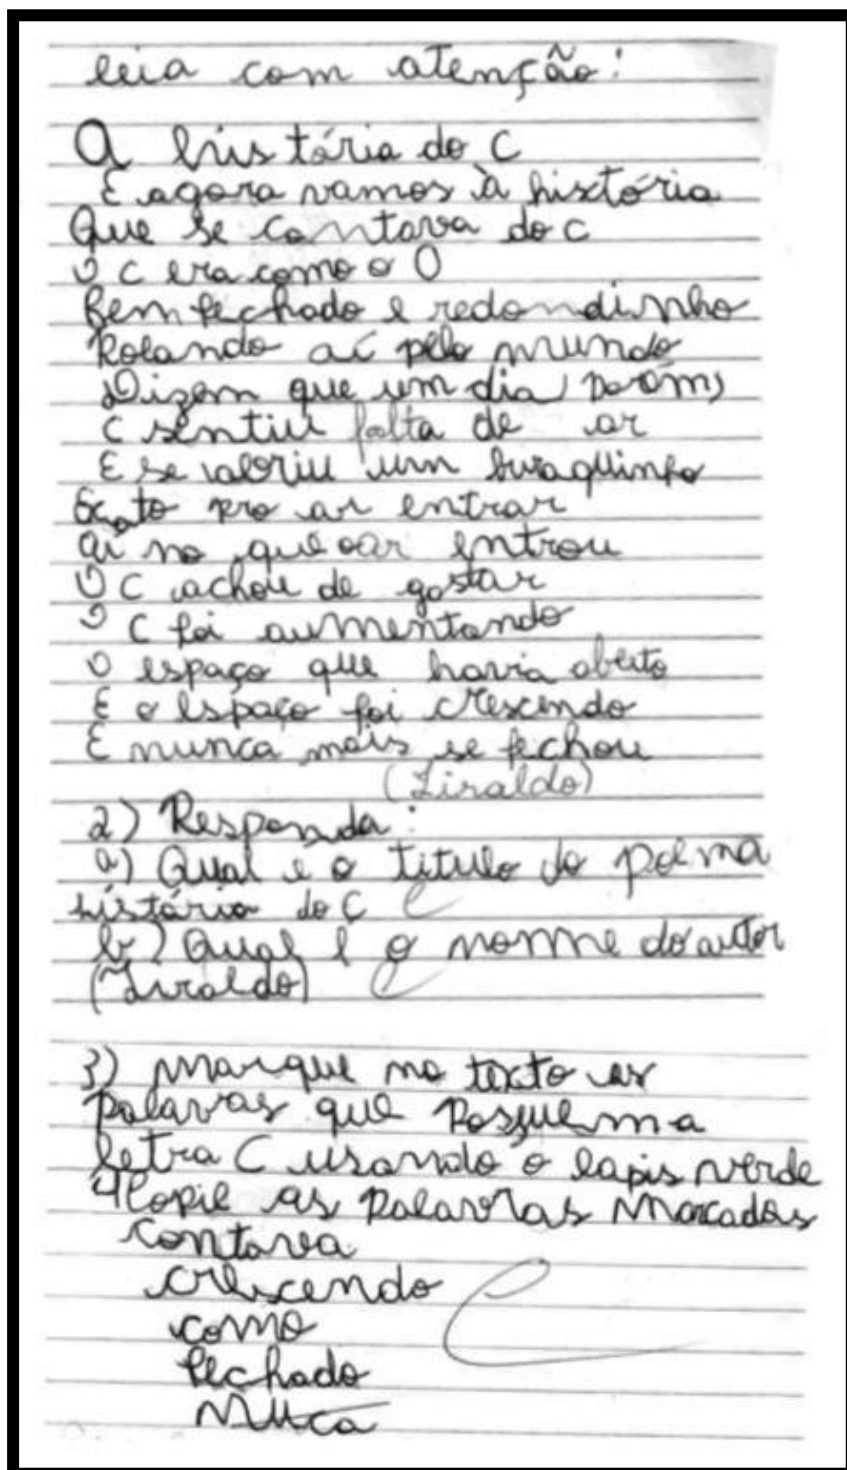 leia com atenção!
A história do C
E agora vamos à história
Que se contava do C
O C era como o O
Bem fechado e redondinho
Rolando aí pelo mundo
Dizem que um dia porém,
C sentiu falta de ar
E se abriu um buraquinho
Exato pro ar entrar
aí no que o ar entrou
O C achou de gostar
O C foi aumentando
O espaço que havia aberto
E o espaço foi crescendo
E nunca mais se fechou
(Ziraldo)
2) Responda:
a) Qual é o titulo do poema
história do C C
b) Qual é o nomme do autor
(Ziraldo) C
3) Marque no texto as
palavras que possuem a
letra C usando o lapis verde
4) Copie as palavras marcadas
contava
crescendo C
como
fechado
nuca